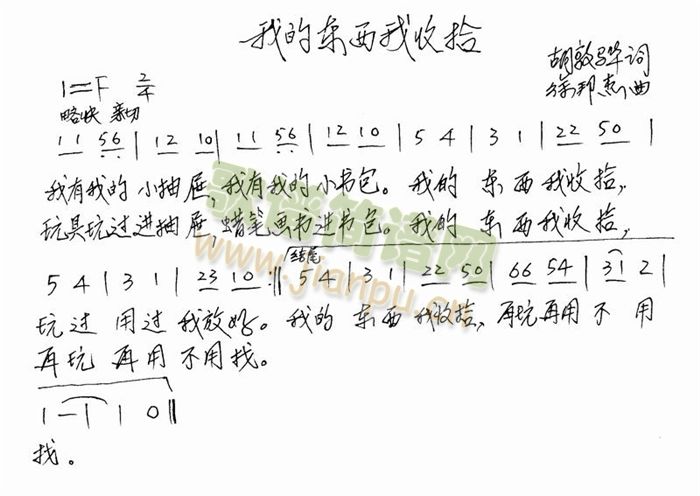 我的东西我收拾
胡敦骅词
1=F 2/4
徐邦杰曲
略快 亲切
11 56 | 12 10 | 11 56 | 12 10 | 5 4 | 3 1 | 22 50 |
我有我的小抽屉,我有我的小书包。我的东西我收拾,
玩具玩过进抽屉,蜡笔画书进书包。我的东西我收拾,
结尾
5 4 | 3 1 | 23 10 :‖ 5 4 | 3 1 | 22 50 | 66 54 | 31 2 |
玩过用过我放好。我的东西我收拾,再玩再用不用
再玩再用不用找。
1 - | 1 0 ‖
找。
歌谱简谱网
www.jianpu.cn